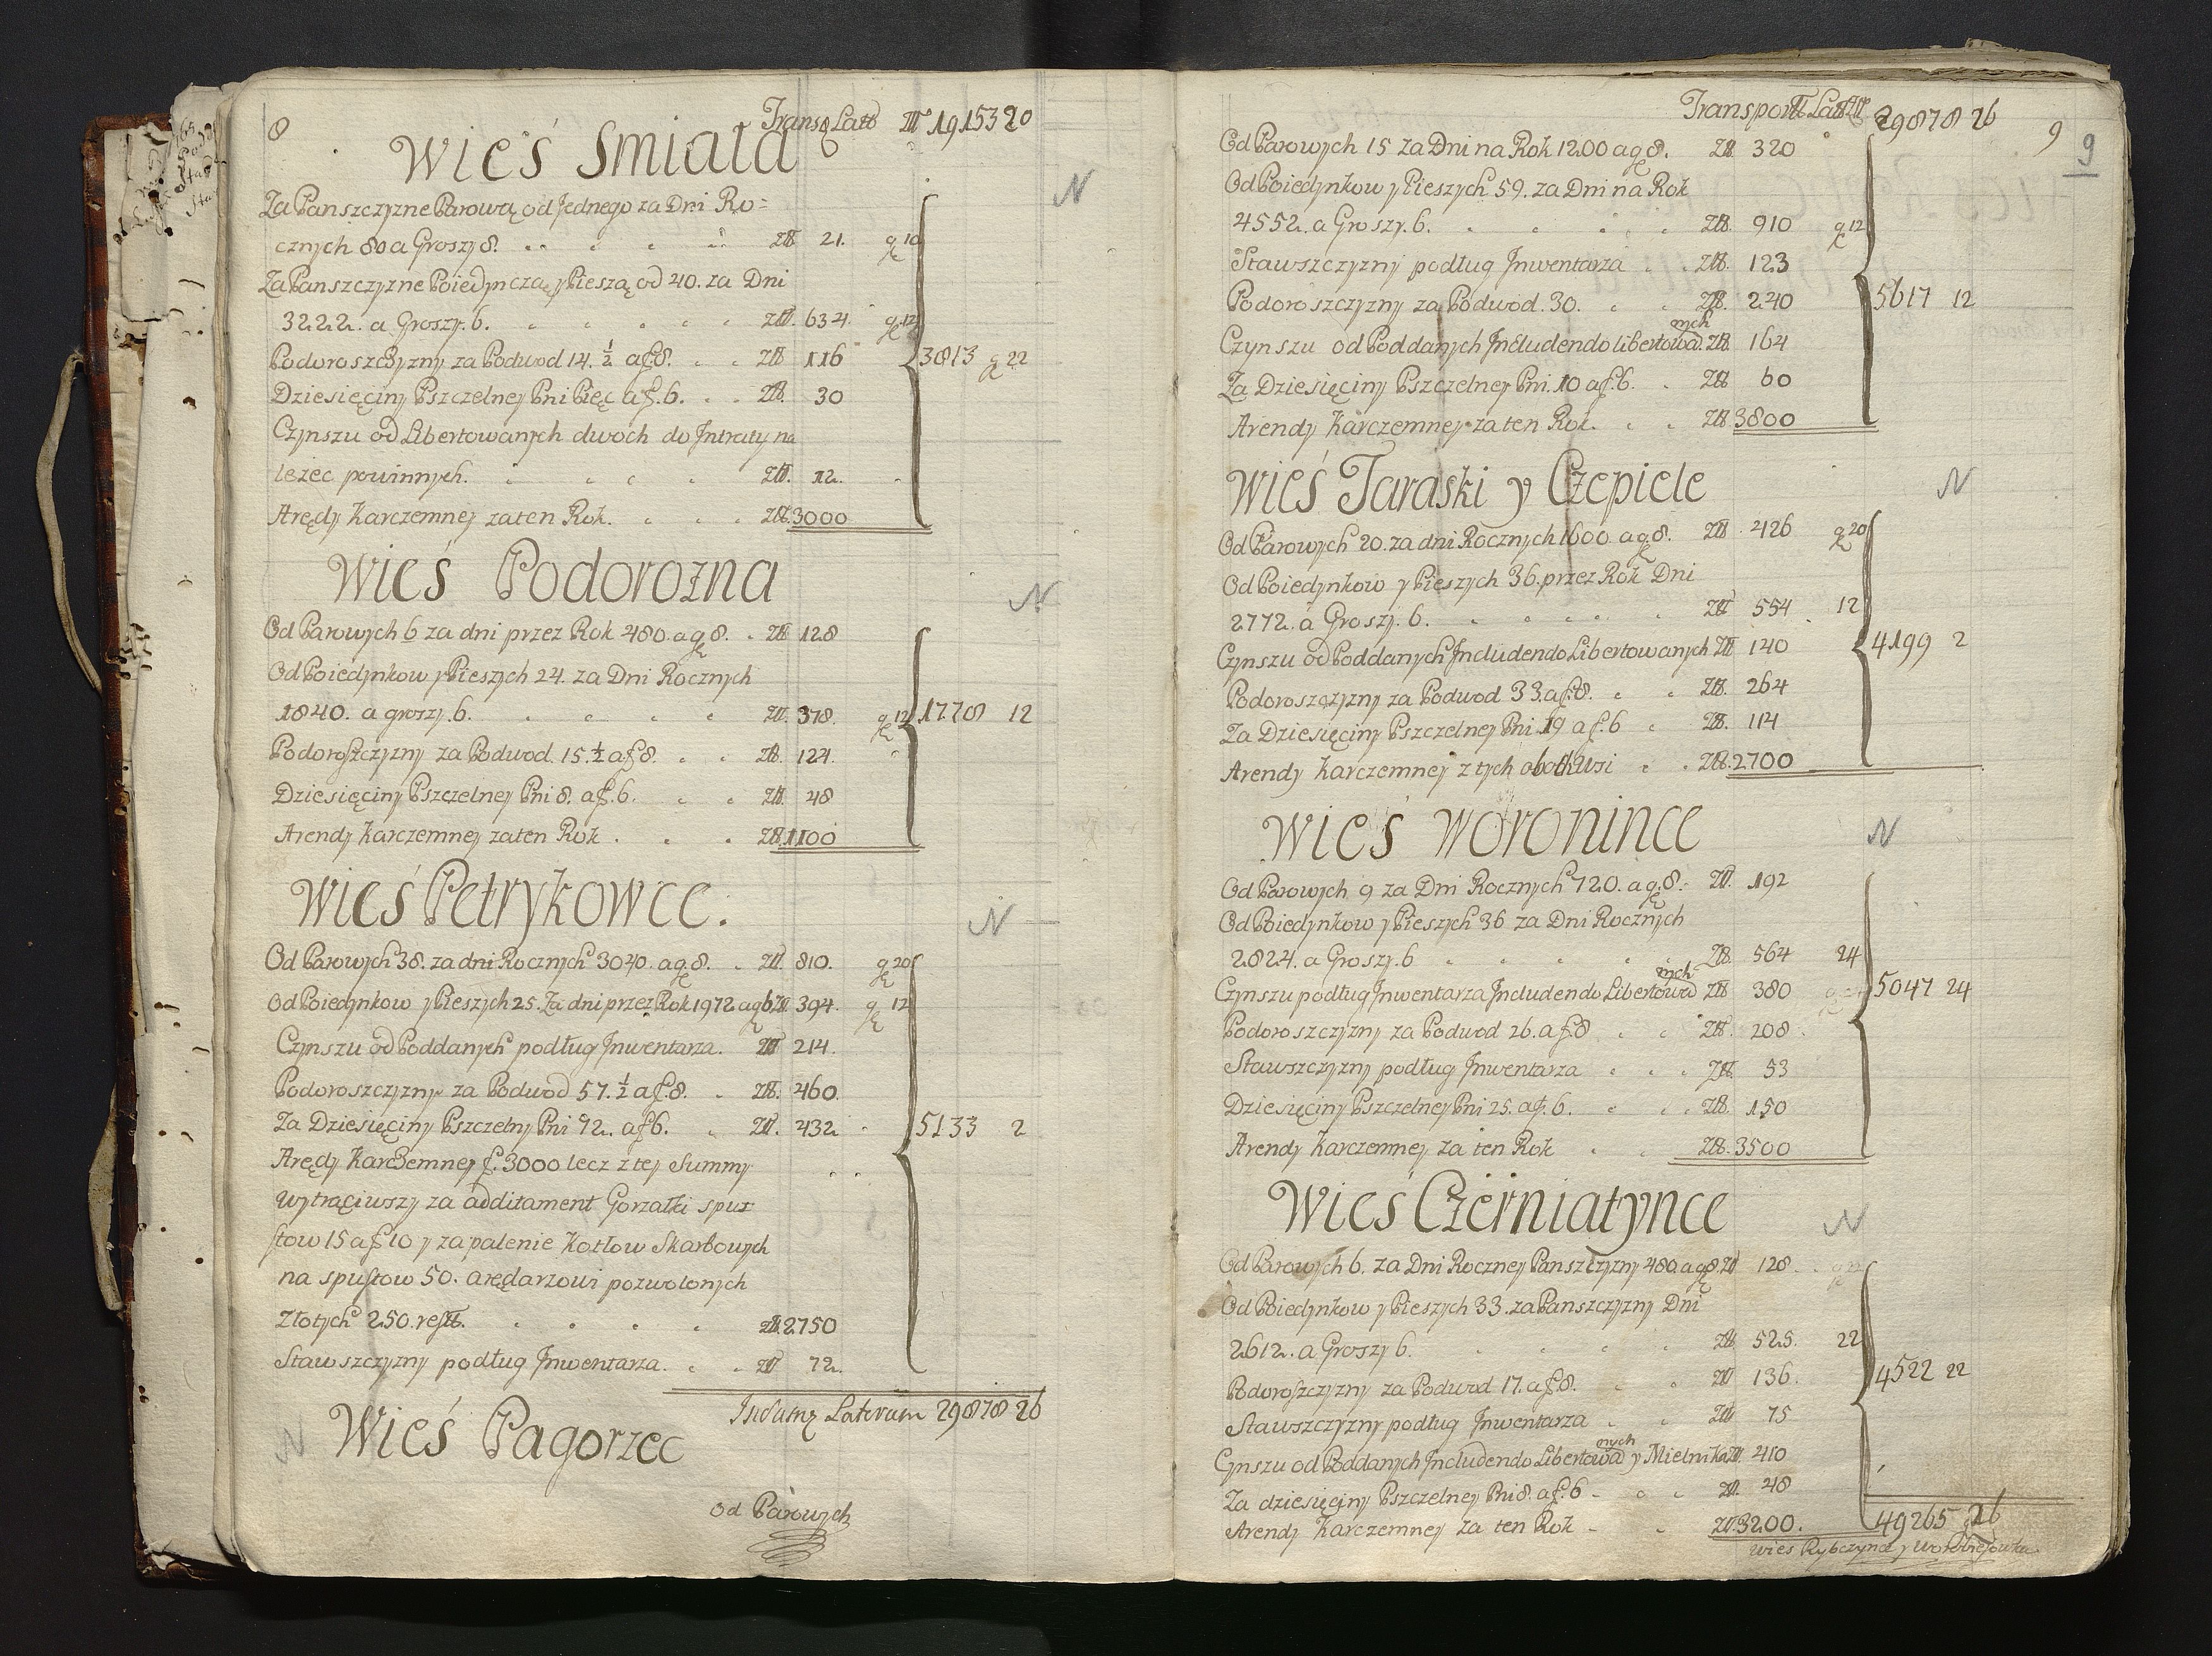 8
Trans: Latb III 19153 20
Wieś Smiała
N
Za Panszczyzne Parową od jednego za Dni Ro=
cznych 80 a Groszy 8. Zł 21. gr 10
Za Panszczyzne Poiedynczą y Pieszą od 40. za Dni
3222. a Groszy. 6. Zł. 634. gr 12
Podoroszczyzny za Podwod 14. ½ a f 8. Zł 116
3813 gr 22
Dziesięciny Pszczelney Pni Pięc a f. 6. Zł. 30
Czynszu od Libertowanych dwoch do Jntraty na
leżec powinnych. Zł. 12.
Arędy Karczemney za ten Rok. Zł. 3000
Wieś Podorozna
N
Od Parowych 6 za dni przez Rok 480. a gr 8. Zł 128
Od Poiedynkow y Pieszych 24. za Dni Rocznych
1840. a groszy. 6. Zł. 378. gr 12
1778 12
Podoroszczyzny za Podwod. 15. ½ a f 8. Zł. 124.
Dziesięciny Pszczelney Pni 8. a f. 6. Zł. 48
Arendy Karczemney za ten Rok Zł. 1100
Wieś Petrykowce.
N
Od Parowych 38. za dni Rocznych 3040. a gr 8. Zł. 810. gr 20
Od Poiedynkow y Pieszych 25. Za dni przez Rok 1972 a gr 6 Zł. 394. gr 12
Czynszu od Poddanych podług Jnwentarza. Zł 214.
Podoroszczyzny za Podwod 57. ½ a f. 8. Zł. 460.
Za Dziesięciny Pszczelny Pni 72. a f 6. Zł. 432
5133 2
Arędy Karczemney f. 3000 lecz z tey Summy
wytrąciwszy za additament Gorzałki spus
stow 15 a f 10 y za palenie Kotłow Skarbowych
na spustow 50. arędarzowi pozwolonych
Złotych 250. restt. Zł. 2750
Stawszczyzny podług Jnwentarza. Zł 72.
Laterum 29878 26
N
Wieś Pagorzec
Od Parowych
Transport Lat 29878 26
9 9
Od Parowych 15 za Dni na Rok 1200 a gr 8. Zł 320
Od Poiedynkow y Pieszych 59. za Dni na Rok
4552. a Groszy. 6. Zł. 910 gr 12
Stawszczyzny podług Jnwentarza Zł. 123
Podoroszczyzny za Podwod. 30. Zł. 240
5617 12
Czynszu od Poddanych Jncludendo libertowanych Zł 164
Za Dziesięciny Pszczelney Pni. 10 a f. 6. Zł 60
Arendy Karczemney za ten Rok. Zł 3800
Wieś Taraski y Czepiele
N
Od Parowych 20. za dni Rocznych 1600 a gr 8. Zł 426 gr 20
Od Poiedynkow y Pieszych 36. przez Rok Dni
2772. a Groszy. 6. Zł 554 12
Czynszu od Poddanych Jncludendo Libertowanych Zł 140
4199 2
Podoroszczyzny za Podwod 33. a f 8. Zł. 264
Za Dziesięciny Pszczelney Pni 19 a f. 6 Zł. 114
Arendy Karczemney z tych oboch Wsi Zł. 2700
Wieś Woronince
N
Od Parowych 9 za Dni Rocznych 720. a gr. 8. Zł. 192
Od Poiedynkow y Pieszych 36 za Dni Rocznych
2824. a Groszy. 6 Zł. 564 24
Czynszu podług Jnwentarza Jncludendo Libertowanych Zł 380
5047 24
Podoroszczyzny za Podwod 26. a f. 8 Zł. 208
Stawszczyzny podług Jnwentarza Zł 53
Dziesięciny Pszczelney Pni 25. a f. 6. Zł. 150
Arendy Karczemney za ten Rok Zł. 3500
Wieś Czerniatynce
N
Od Parowych 6. za Dni Roczney Panszczyzny 480. a gr 8. Zł 128
Od Poiedynkow y Pieszych 33. za Panszczyzny Dni
2612. a Groszy 6. Zł 525. 22
Podoroszczyzny za Podwod 17. a f. 8. Zł 136.
4522 22
Stawszczyzny podług Jnwentarza Zł 75
Czynszu od Poddanych Jncludendo Libertowanych y Mielnika Zł. 410
Za dziesięciny Pszczelney Pni 8. a f. 6 Zł. 48
Arendy Karczemney za ten Rok Zł. 3200.
49265 26
Wies Rybczynce y